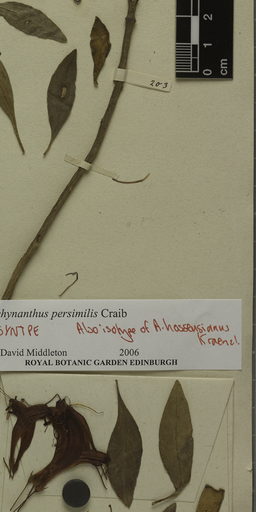 203
0 1 2
cm
hynanthus persimilis Craib
SYNTPE Also isotype of A. hosseusianus
Kraenzl.
David Middleton 2006
ROYAL BOTANIC GARDEN EDINBURGH